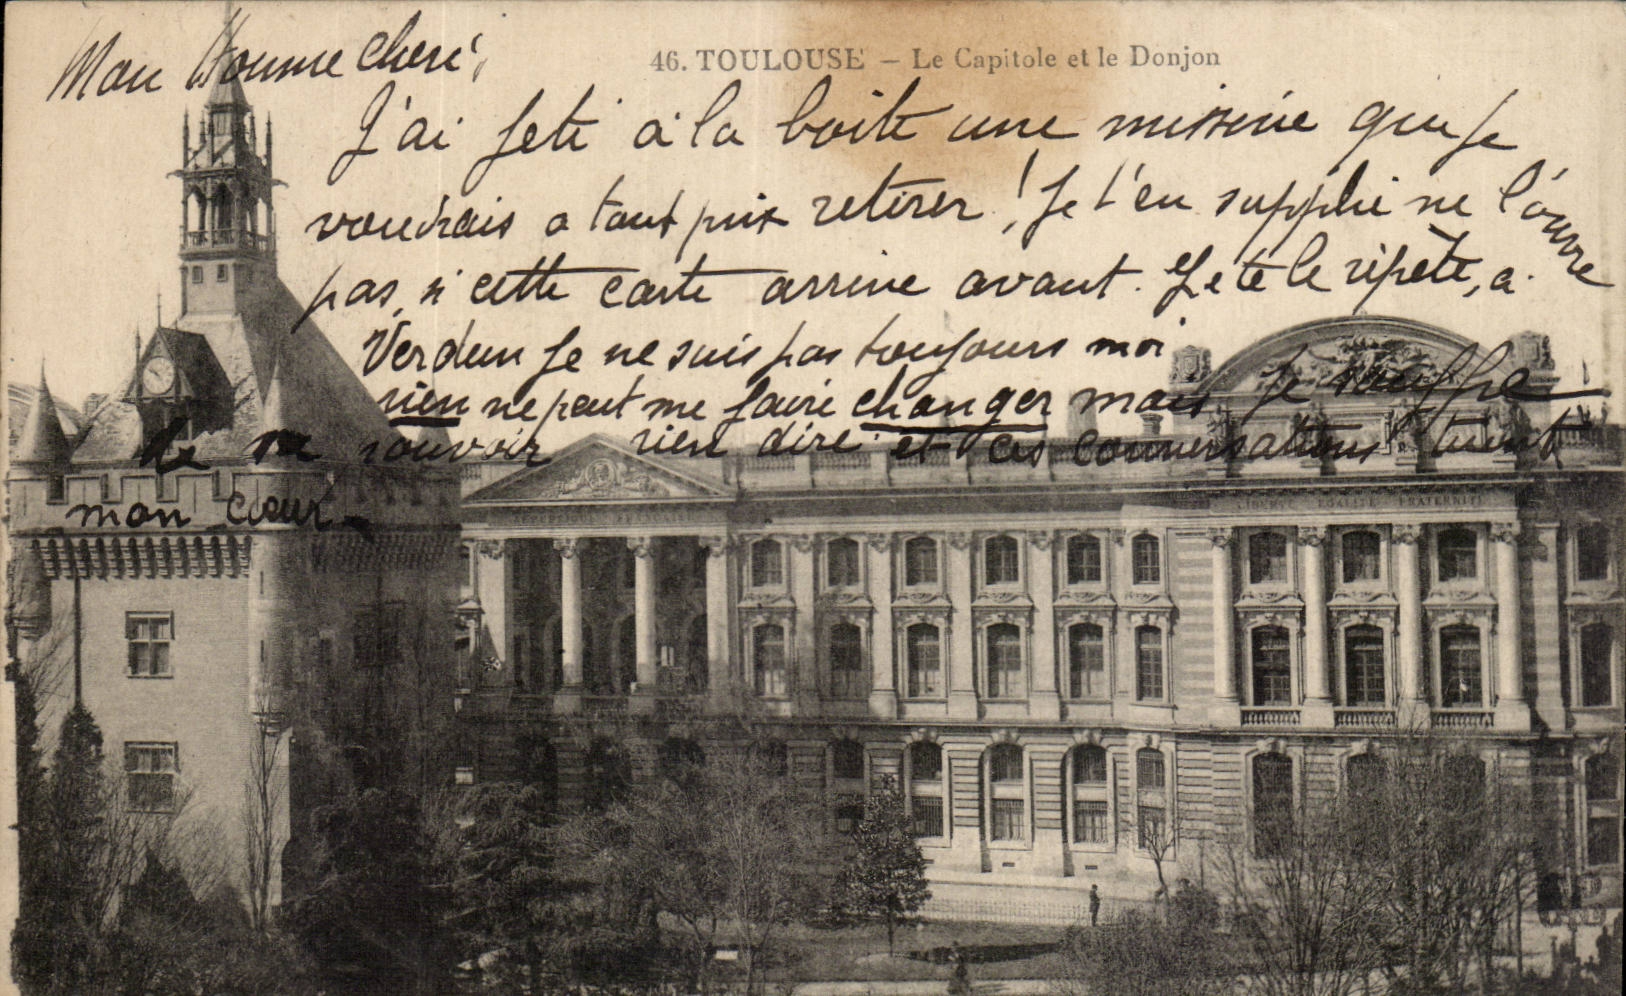 46. TOULOUSE – Le Capitole et le Donjon
Mon Homme Cheri,
J'ai jeté à la boîte une missive que je
voudrais a tout prix retirer ! Je t'en supplie ne l'ouvre
pas, si cette carte arrive avant. Je te le répète, a
Verdun je ne suis pas toujours moi
rien ne peut me faire changer mais je souffre
de ne pouvoir rien dire et ces conversations tuent
mon cœur.
REPUBLIQUE FRANCAISE
LIBERTÉ EGALITÉ FRATERNITÉ